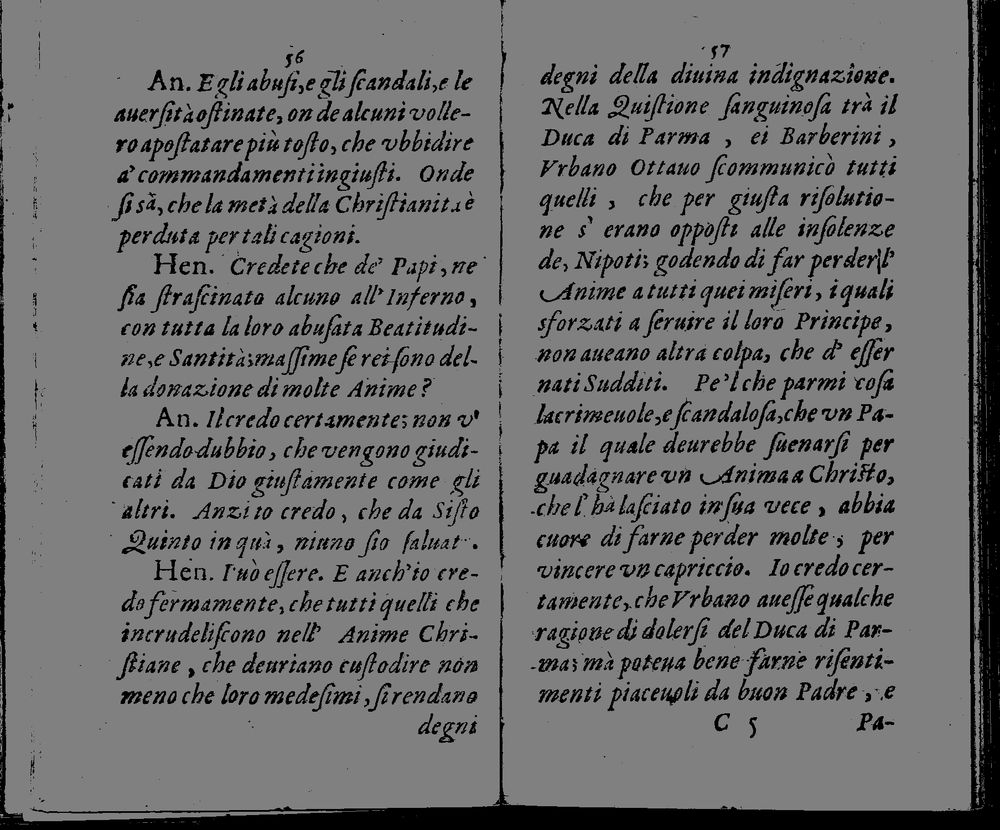 56
An. E gli abuſi, e gli ſcandali, e le
auerſità oſtinate, on de alcuni volle-
ro apoſtatare più toſto, che vbbidire
a' commandamenti ingiuſti. Onde
ſi sà, che la metà della Chriſtianità è
perduta per tali cagioni.
Hen. Credete che de' Papi, ne
ſia ſtraſcinato alcuno all' Inferno,
con tutta la loro abuſata Beatitudi-
ne, e Santità; maſſime ſe rei ſono del-
la donazione di molte Anime?
An. Il credo certamente; non v'
eſſendo dubbio, che vengono giudi-
cati da Dio giuſtamente come gli
altri. Anzi io credo, che da Siſto
Quinto in quà, niuno ſio ſaluat.
Hen. Può eſſere. E anch' io cre-
do fermamente, che tutti quelli che
incrudeliſcono nell' Anime Chri-
ſtiane, che deuriano cuſtodire non
meno che loro medeſimi, ſi rendano
degni
57
degni della diuina indignazione.
Nella Quiſtione ſanguinoſa trà il
Duca di Parma, ei Barberini,
Vrbano Ottauo ſcommunicò tutti
quelli, che per giuſta riſolutio-
ne s' erano oppoſti alle inſolenze
de, Nipoti; godendo di far perder l'
Anime a tutti quei miſeri, i quali
sforzati a ſeruire il loro Principe,
non aueano altra colpa, che d' eſſer
nati Sudditi. Pe'l che parmi coſa
lacrimeuole, e ſcandaloſa, che vn Pa-
pa il quale deurebbe ſuenarſi per
guadagnare vn Anima a Chriſto,
che l' hà laſciato in ſua vece, abbia
cuore di farne perder molte; per
vincere vn capriccio. Io credo cer-
tamente, che Vrbano aueſſe qualche
ragione di dolerſi del Duca di Par-
ma; mà poteua bene farne riſenti-
menti piaceuoli da buon Padre, e
C 5 Pa-